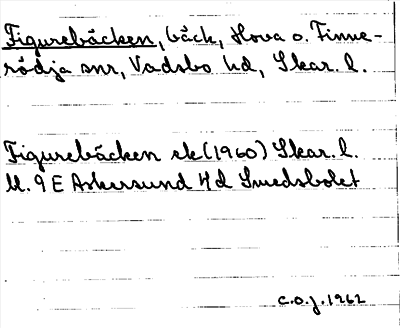 Figurebäcken, bäck, Hova o. Finne-
rödja snr, Vadsbo hd, Skar. l.
Figurebäcken ek (1960) Skar. l.
bl. 9 E Askersund 4 d Smedsbolet
C.O.J. 1962